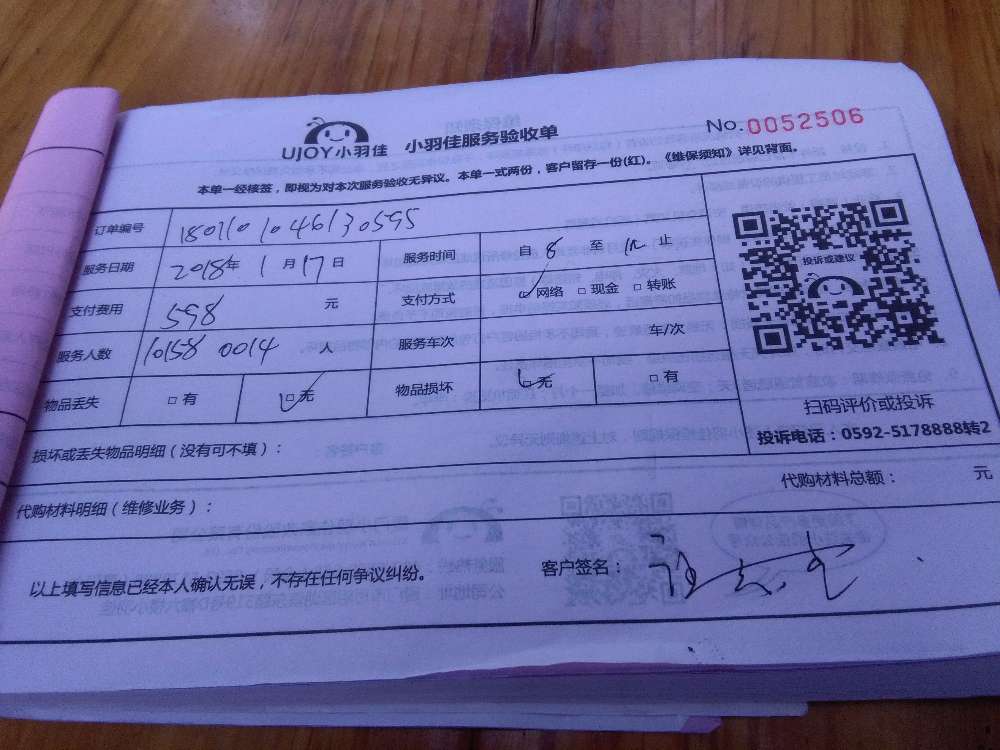 UJOY小羽佳 小羽佳服务验收单 No.0052506
本单一经核签，即视为对本次服务验收无异议。本单一式两份，客户留存一份(红)。《维保须知》详见背面。
订单编号 1801101046130595
服务日期 2018年1月17日 服务时间 自8至12止
支付费用 598 元 支付方式 网络 □现金 □转账
服务人数 10158 0014 人 服务车次 车/次
物品丢失 □有 □无 物品损坏 □无 □有
损坏或丢失物品明细（没有可不填）：
投诉或建议
扫码评价或投诉
投诉电话：0592-5178888转2
代购材料明细（维修业务）： 代购材料总额： 元
以上填写信息已经本人确认无误，不存在任何争议纠纷。 客户签名：